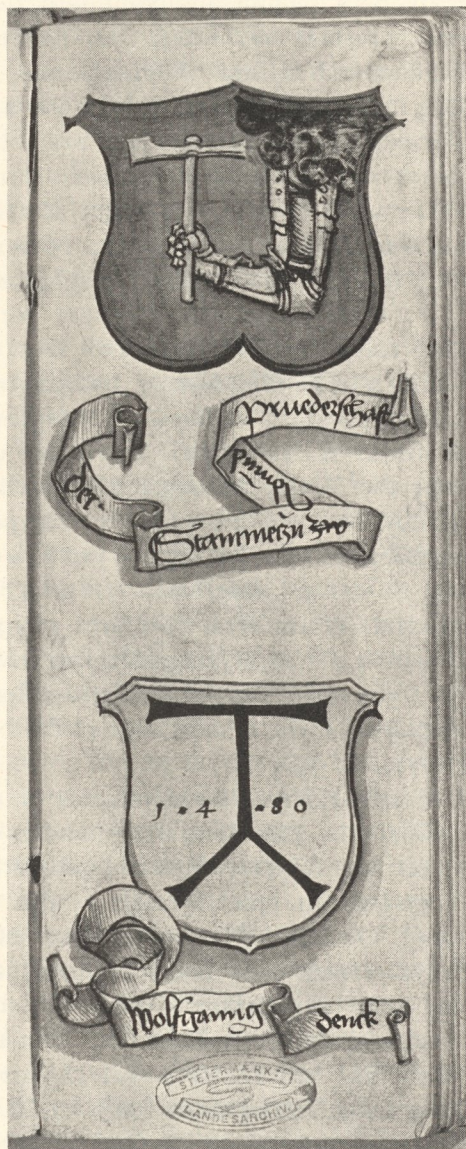 Pruederschaft
der
Stainmetzn
1480
Wolfganng denck
STEIERMÄRK.
LANDESARCHIV.